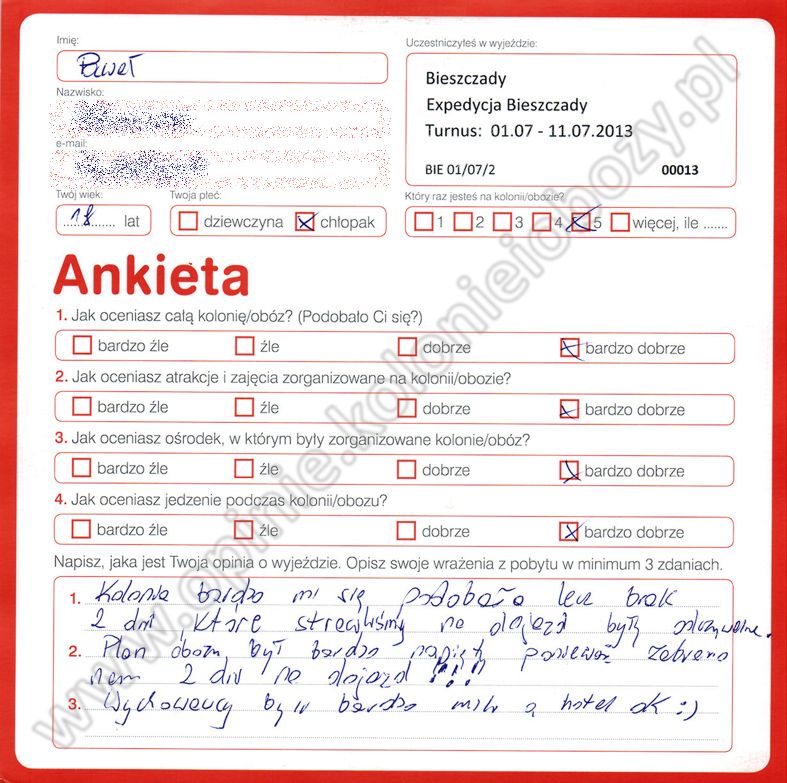 Imię:
Paweł
Nazwisko:
e-mail:
Twój wiek:
18 lat
Twoja płeć:
dziewczyna chłopak
Uczestniczyłeś w wyjeździe:
Bieszczady
Expedycja Bieszczady
Turnus: 01.07 - 11.07.2013
BIE 01/07/2 00013
Który raz jesteś na kolonii/obozie?
1 2 3 4 5 więcej, ile .......
Ankieta
1. Jak oceniasz całą kolonię/obóz? (Podobało Ci się?)
bardzo źle źle dobrze bardzo dobrze
2. Jak oceniasz atrakcje i zajęcia zorganizowane na kolonii/obozie?
bardzo źle źle dobrze bardzo dobrze
3. Jak oceniasz ośrodek, w którym były zorganizowane kolonie/obóz?
bardzo źle źle dobrze bardzo dobrze
4. Jak oceniasz jedzenie podczas kolonii/obozu?
bardzo źle źle dobrze bardzo dobrze
Napisz, jaka jest Twoja opinia o wyjeździe. Opisz swoje wrażenia z pobytu w minimum 3 zdaniach.
1. Kolonia bardzo mi się podobała lecz brak
2 dni, które straciliśmy na dojazd były odczuwalne.
2. Plan obozu był bardzo napięty ponieważ zabrano
nam 2 dni na dojazd !!!!
3. Wychowawcy byli bardzo mili a hotel ok :)
www.opinie.kolonieiobozy.pl